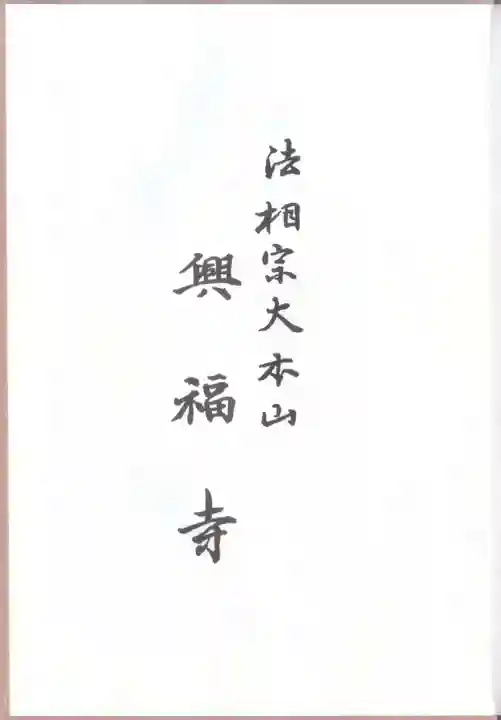 法相宗大本山
興福寺